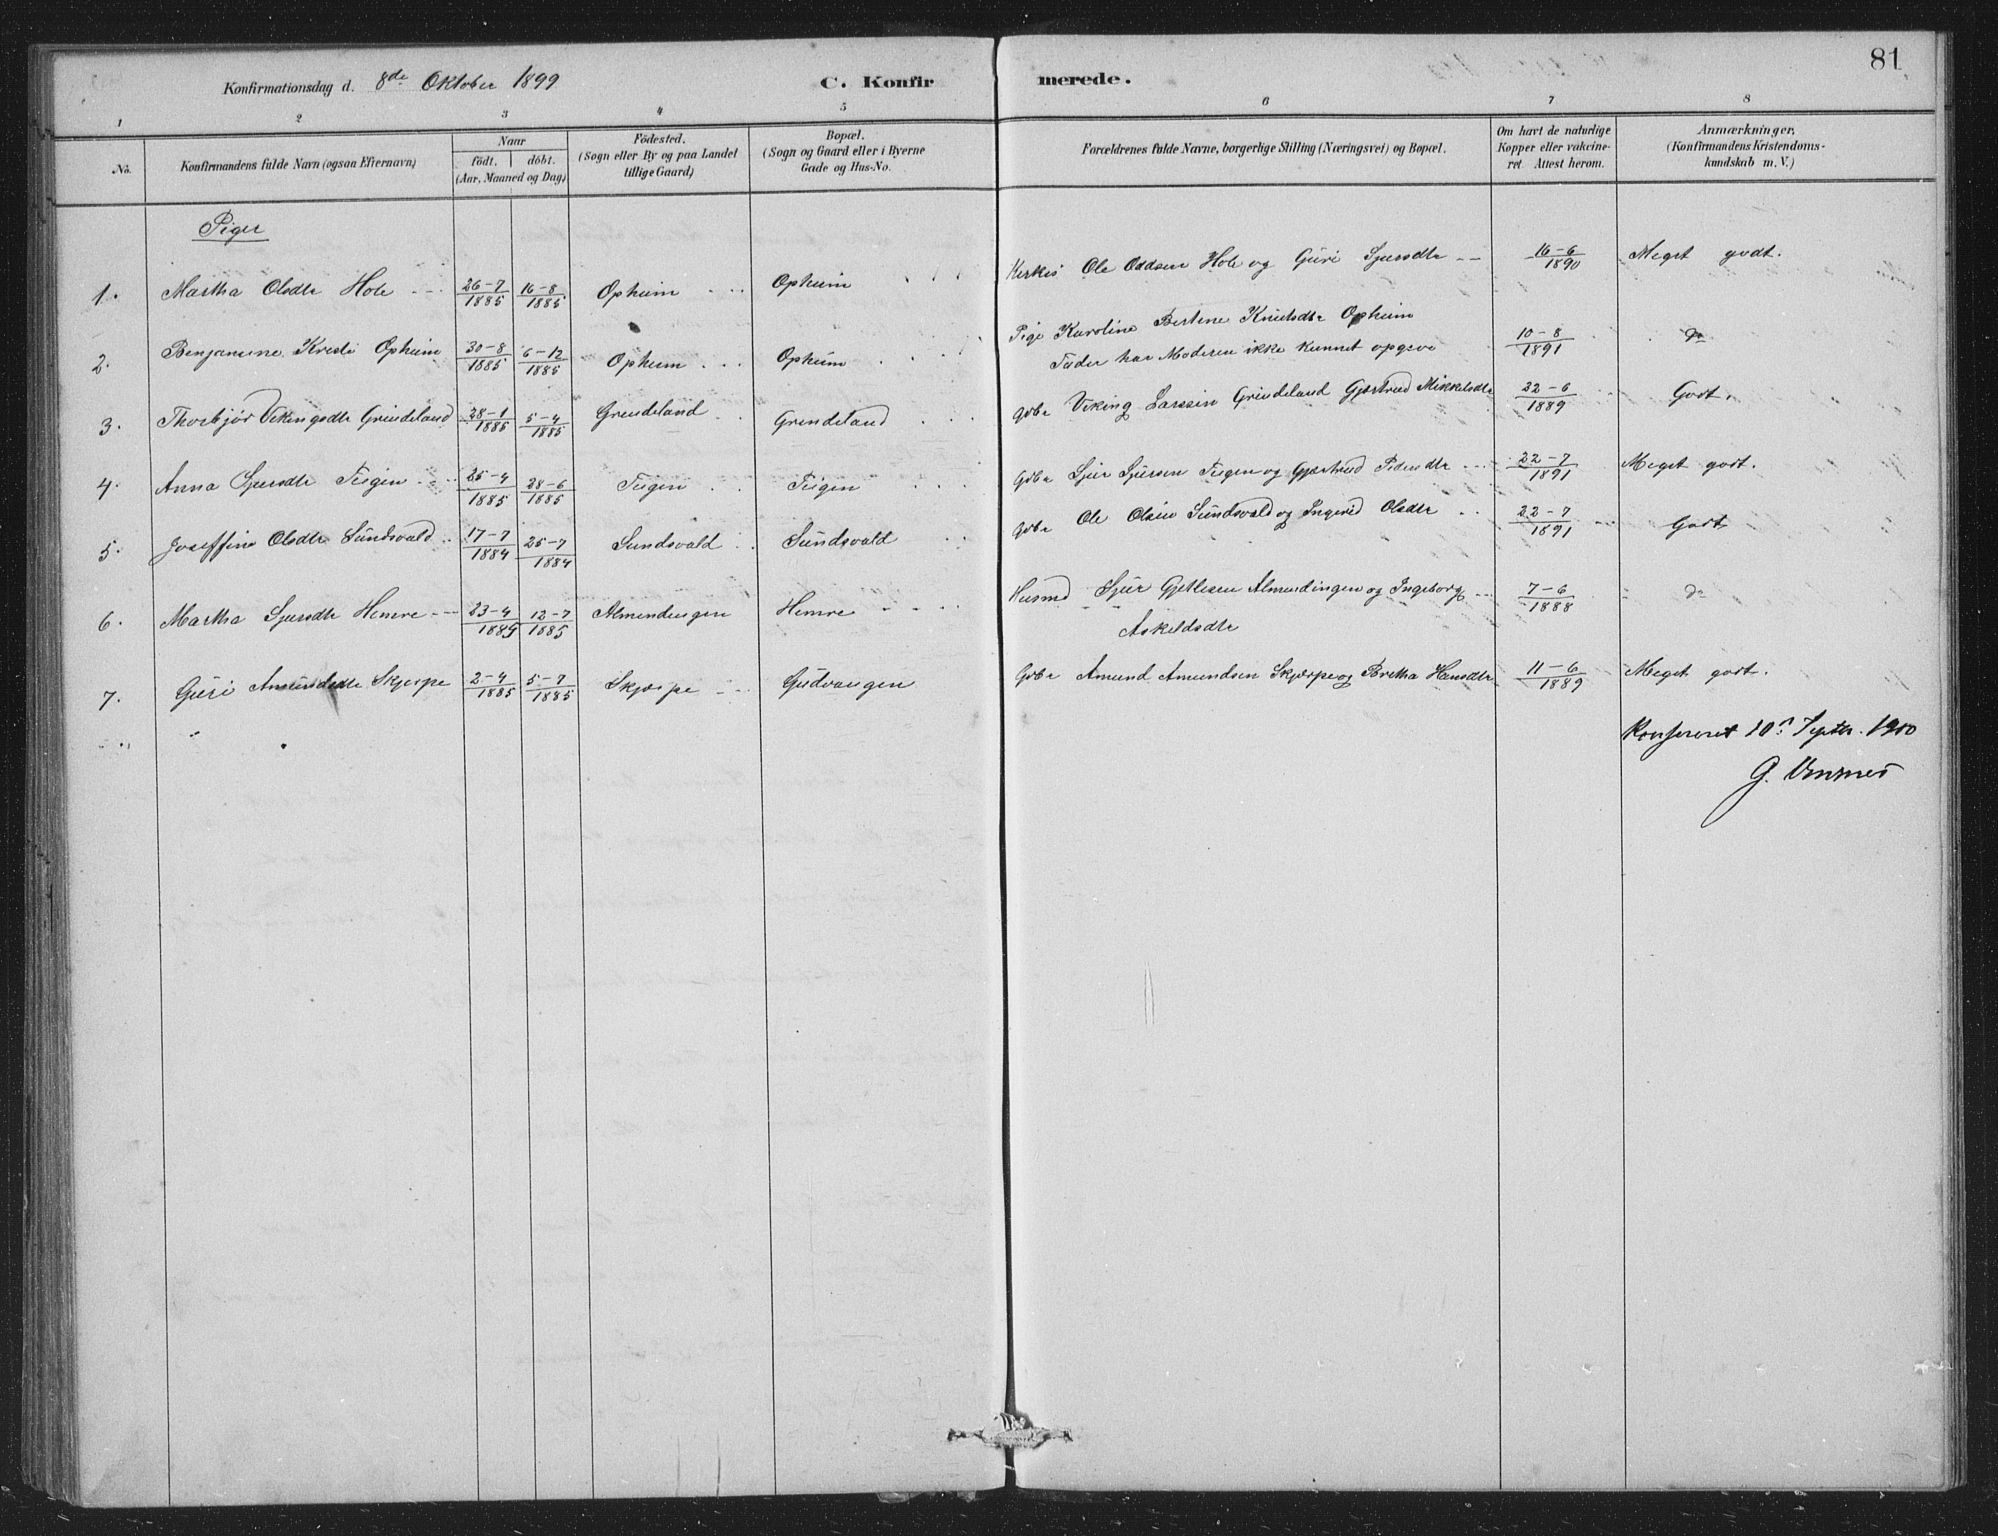 81
Konfirmationsdag d. 8de Oktober 1899
C. Konfirmerede.
1 2 3 4 5 6 7 8
No. Konfirmandens fulde Navn (ogsaa Efternavn) Naar födt. döbt. (Aar, Maaned og Dag) Födested. (Sogn eller By og paa Landet tillige Gaard) Bopæl. (Sogn og Gaard eller i Byerne Gade og Hus-No. Forældrenes fulde Navne, borgerlige Stilling (Næringsvei) og Bopæl. Om havt de naturlige Kopper eller vakcineret. Attest herom. Anmærkninger, (Konfirmandens Kristendomskundskab m. V.)
Piger
1. Martha Olsdtr Hole 26-7 1885 16-8 1885 Opheim Opheim Ole Oddsen Hole og Guri Sjursdtr 16-6 1890 Meget godt.
2. Benjamine Kristi Opheim 30-8 1885 6-12 1885 Opheim Opheim Pige Karoline Bertine Knutsdtr Opheim
Fader har Moderen ikke kunnet opgive 10-8 1891 do
3. Thorbjør Vikingsdtr Grindeland 28-1 1885 5-4 1885 Grindeland Grindeland Gdbr Viking Larssen Grindeland Gjertrud Mikkelsdtr 22-6 1889 Godt.
4. Anna Sjursdtr Tiigen 25-4 1885 28-6 1885 Tiigen Tiigen Gdbr Sjur Sjursen Tiigen og Gjertrud Pedersdtr 22-7 1891 Meget godt.
5. Joseffine Olsdtr Sundsvald 17-7 1884 25-7 1884 Sundsvald Sundsvald Gdbr Ole Olsen Sundsvald og Ingerid Olsdtr 22-7 1891 Godt
6. Martha Sjursdtr Hemre 23-4 1885 12-7 1885 Almendingen Hemre Husmd Sjur Gjetlesen Almendingen og Ingeborg
Askeldsdtr 7-6 1888 do
7. Guri Amundsdtr Skjerpe 2-4 1885 5-7 1885 Skjerpe Gudvangen Gdbr Amund Amundsen Skjerpe og Bretha Hansdtr 11-6 1889 Meget godt.
Konfereret 10 Septbr. 1900
G.